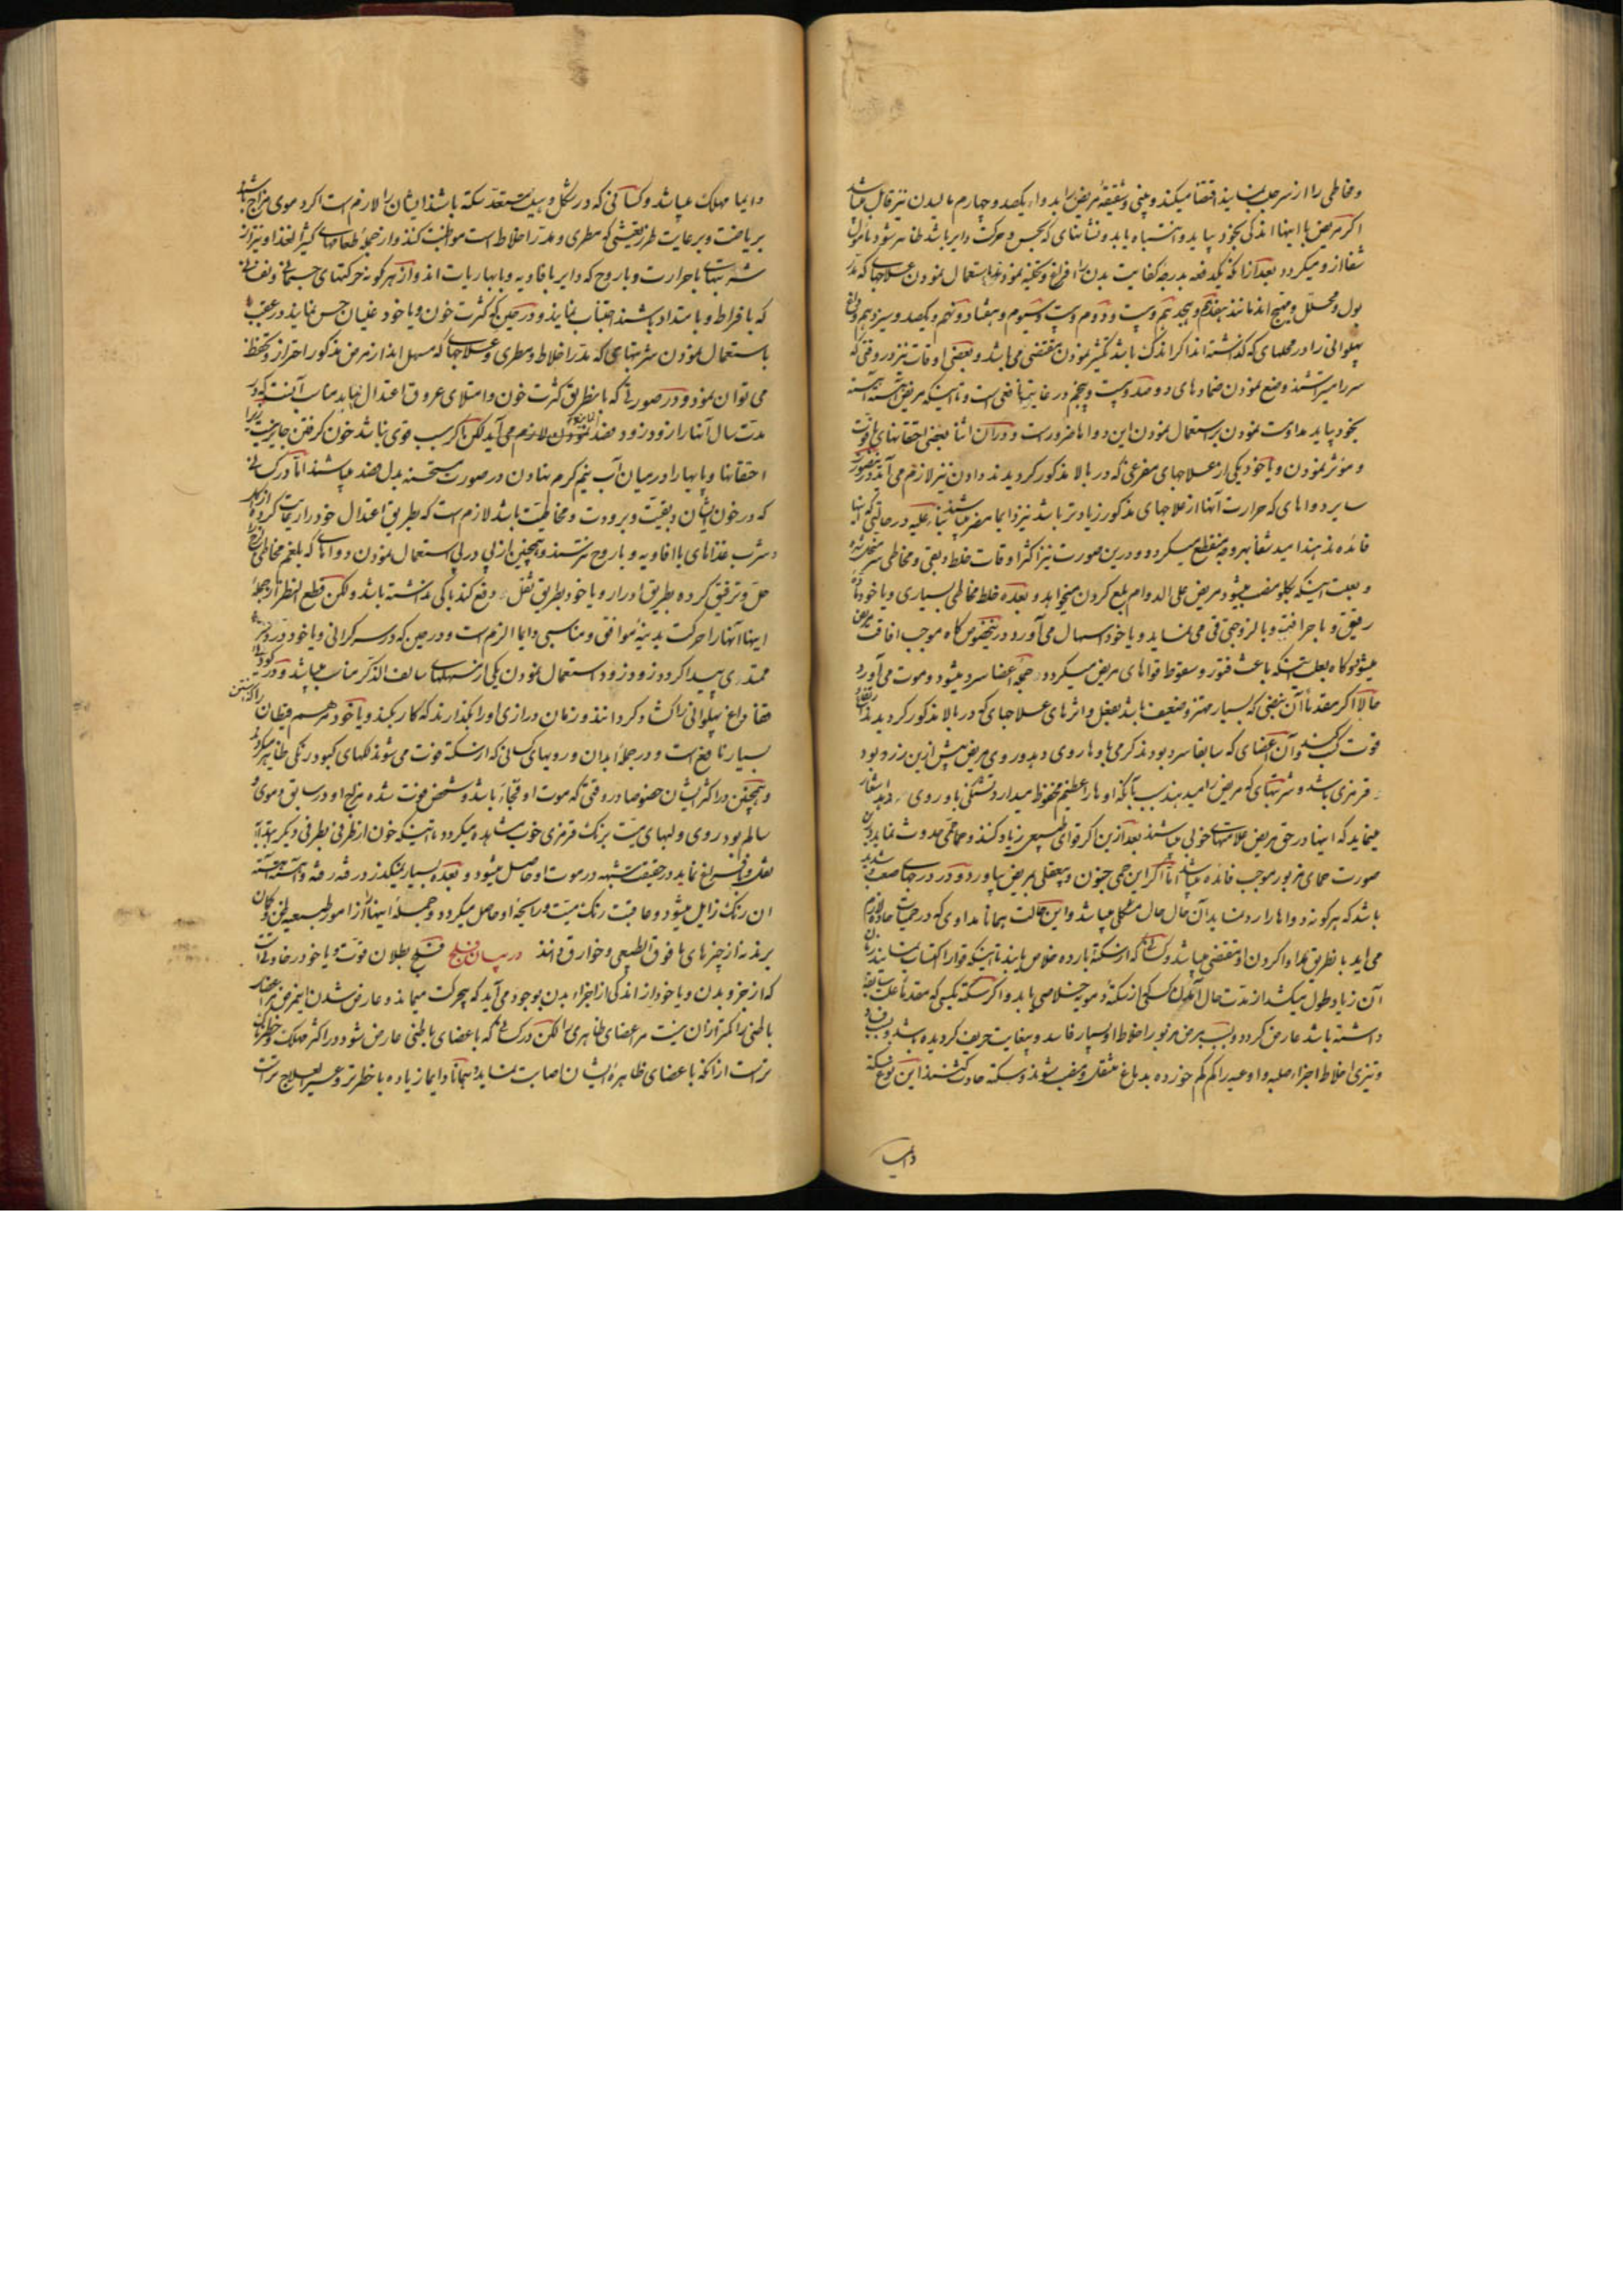 ومخاطی را از سر جلب نماید اقتضا میکند و بینی و شقیقهٔ مریض را بدواء یکصد و چهارم مالیدن نیز قابل میباشد
اکر مریض با اینها اندکی بخود بیاید و انتباه یابد و نشانهای که بحس و حرکت دایر باشد ظاهر شود مأمول
شفا از و میکردد بعد از آنکه یکدفعه بدرجهٔ کفایت بدن را افراغ و تخلیه نمودند باستعمال نمودن علاجهای که مدر
بول و محلل و مهیج اند مانند هفدهم و هیجدهم و بیست و دوم و بیست و سیوم و هفتاد و پنجم و یکصد و سیزدهم و داغ
پهلوانی را در محلهای که کذشته اند اکر اندک باشد کمتر نمودن مقتضی می باشد و بعضی اوقات نیز در وقتی که
سر را میتراشند وضع نمودن ضمادهای دوصد و بیست و پنجم در غایت نافع است و تا اینکه مریض آهسته آهسته
بخود بیاید مداومت نمودن بر استعمال نمودن این دواها ضرورست و در آن اثنا بعضی احتقانهای با قوت
و مؤثر نمودن و یا خود یکی از علاجهای مفرغی که در بالا مذکور کردیدند دادن نیز لازم می آید در اینصورت
سایر دواهای که حرارت آنها از علاجهای مذکور زیادتر باشد نیز دایما مضر میباشند بناء علیه در حالتی که اینها
فائده ندهند امید شفا بهر وجه منقطع میکردد و درین صورت نیز اکثر اوقات خلط دبقی و مخاطی سر متحلل شده
و بعلت اینکه بکلو منصب میشود مریض علی الدوام بلع کردن میخواهد و بعده خلط مخاطی بسیاری و یا خود مادهٔ
رقیق و با حرافت و با لزوجتی قی می نماید و یا خود اسهال می آورد و در اینخصوص کاه موجب افاقت مریض
میشود و کاه بعلت اینکه باعث فتور و سقوط قواهای مریض میکردد جمیع اعضا سرد میشود و موت می آورد
حالا اکر مقدماً آن نبضی که بسیار مهتز و ضعیف باشد بفعل و اثرهای علاجهای که در بالا مذکور کردیدند
قوت کسب کند و آن اعضای که سابقا سرد بودند کرمی یابد و روی مریض پیش ازین زرد بود
قرمزی باشد و شربتهای که مریض را میدهند بسبب آنکه او را عظیم محفوظ میدارد و تشنکی باو روی دهد اشعار
مینماید که اینها در حق مریض علامتهای خوبی میباشند بعد ازین اکر قوای طبیعی زیاد کنند و حمای حدوث نماید درین
صورت حمای مزبور موجب فائده میباشد اما اکر این حمی جنون و بیعقلی بمریض بیاورد و در درجهای صعب و شدید
باشد که هر کونه دواها را رد نماید آن حال حال مشکلی میباشد و این حالت همانا مداوی که در حمیات حاده لازم
می آید با نطریق مداوا کردن او مقتضی میباشد و کسانی که از سکتهٔ بارده خلاص یابند تا اینکه قوا را اکتساب نمایند زمان
آن زیاد طول میکشد از مدت حال آنکه کسی از سکتهٔ دمویه خلاصی یابد و اکر سکته بکسی که مقدماً علت سابقه
داشته باشد عارض کردد و بسبب مرض مزبور اخلاط او بسیار فاسد و بغایت حریف کردیده باشد و بسبب فساد
و تیزی اخلاط اجزاء صلبه و اوعیه را کم کم خورده بدماغ منتقل و منصب شوند و سکته حادث کنند این نوع سکته
دایما
دایما مهلک میباشد و کسانی که در شکل و هیئت مستعد سکته باشند ایشان را لازم است اکر دموی مزاج باشند
بریاضت و برعایت طرز تعیشی که مطری و مدر اخلاط است مواظبت کنند و از جملهٔ طعامهای کثیر الغذا و نیز از
شربتهای با حرارت و با روح که دایر بافاویه و بابهاریات اند و از هر کونه حرکتهای جسمانی و نفسانی
که بافراط و باشتداد باشند اجتناب نمایند و در حین که کثرت خون و یا خود غلیان حس نمایند در عقب
باستعمال نمودن شربتهای که مدر اخلاط و مطری و علاجهای که مسهل اند از مرض مذکور احتراز و تحفظ
می توان نمود و در صورتی که با نطریق کثرت خون و امتلای عروق اعتدال نیابد مناسب آنست که در
مدت سال آنها را زود زود فصد نمودن لازم می آید لکن تا اکر سبب قوی نباشد خون کرفتن جایز نیست زیرا
احتقانها و پایها را در میان آب نیم کرم نهادن در صورت مستحسنه بدل فصد میباشند اما در کسانی
که در خون ایشان دبقیت و برودت و مخاطیت باشد لازم است که بطریق اعتدال خود را رعایت کرده از اکل
و شرب غذاهای با افاویه و با روح نترسند و همچنین از پی در پی استعمال نمودن دواهای که بلغم مخاطی را
حل و ترقیق کرده بطریق ادرار و یا خود بطریق تفل دفع کند باکی نداشته باشد و لکن قطع النظر از جملهٔ
اینها آنها را حرکت بدنیهٔ موافق و مناسبی دایما الزم است و در حین که در سر کرانی و یا خود درد سر
ممتدی پیدا کردد زود زود استعمال نمودن یکی از مسهلهای سالف الذکر مناسب میباشد و در کودی
قفا داغ پهلوانی را کشاد کردانند و زمان درازی او را بکذارند که کار بکند و یا خود مرهم قیطان را کذاشتن
بسیار نافع است و در جملهٔ ابدان و رویهای کسانی که از سکته فوت می شوند لکهای کبود رنکی ظاهر میکردد
و همچنین در اکثر ایشان خصوصا در وقتی که موت او فجاءة باشد و شخص فوت شده مزاج او در سابق دموی و
سالم بود روی و لبهای میت برنک قرمزی خوب مشاهده میکردد تا اینکه خون از طرفی بطرفی دیکر بهر آینه
نقل و افراغ نماید در حقیقت شبهه در موت او حاصل میشود و بعده بسیار نمیکذرد رفته رفته و آهسته آهسته
آن رنک زایل میشود و عاقبت رنک میت در ایحهٔ او حاصل میکردد و جملهٔ اینها را از امور طبیعیه ظن و کمان
برند نه از چیزهای مافوق الطبیعی و خوارق دانند در بیان فلج فلج بطلان قوت و یا خود رخاوتی است
که از جزو بدن و یا خود از اندکی از اجزاء بدن بوجود می آید که بیحرکت میماند و عارض شدن اینمرض مر اعضای
باطنی را کمتر از آن نیست مر اعضای ظاهری را لکن در کسانی که باعضای باطنی عارض شود در اکثر مهلک و خطرناک
تر است از آنکه باعضای ظاهرهٔ ایشان اصابت نماید همانا دایما زیاده با خطرتر و عسیر العلاج تر است